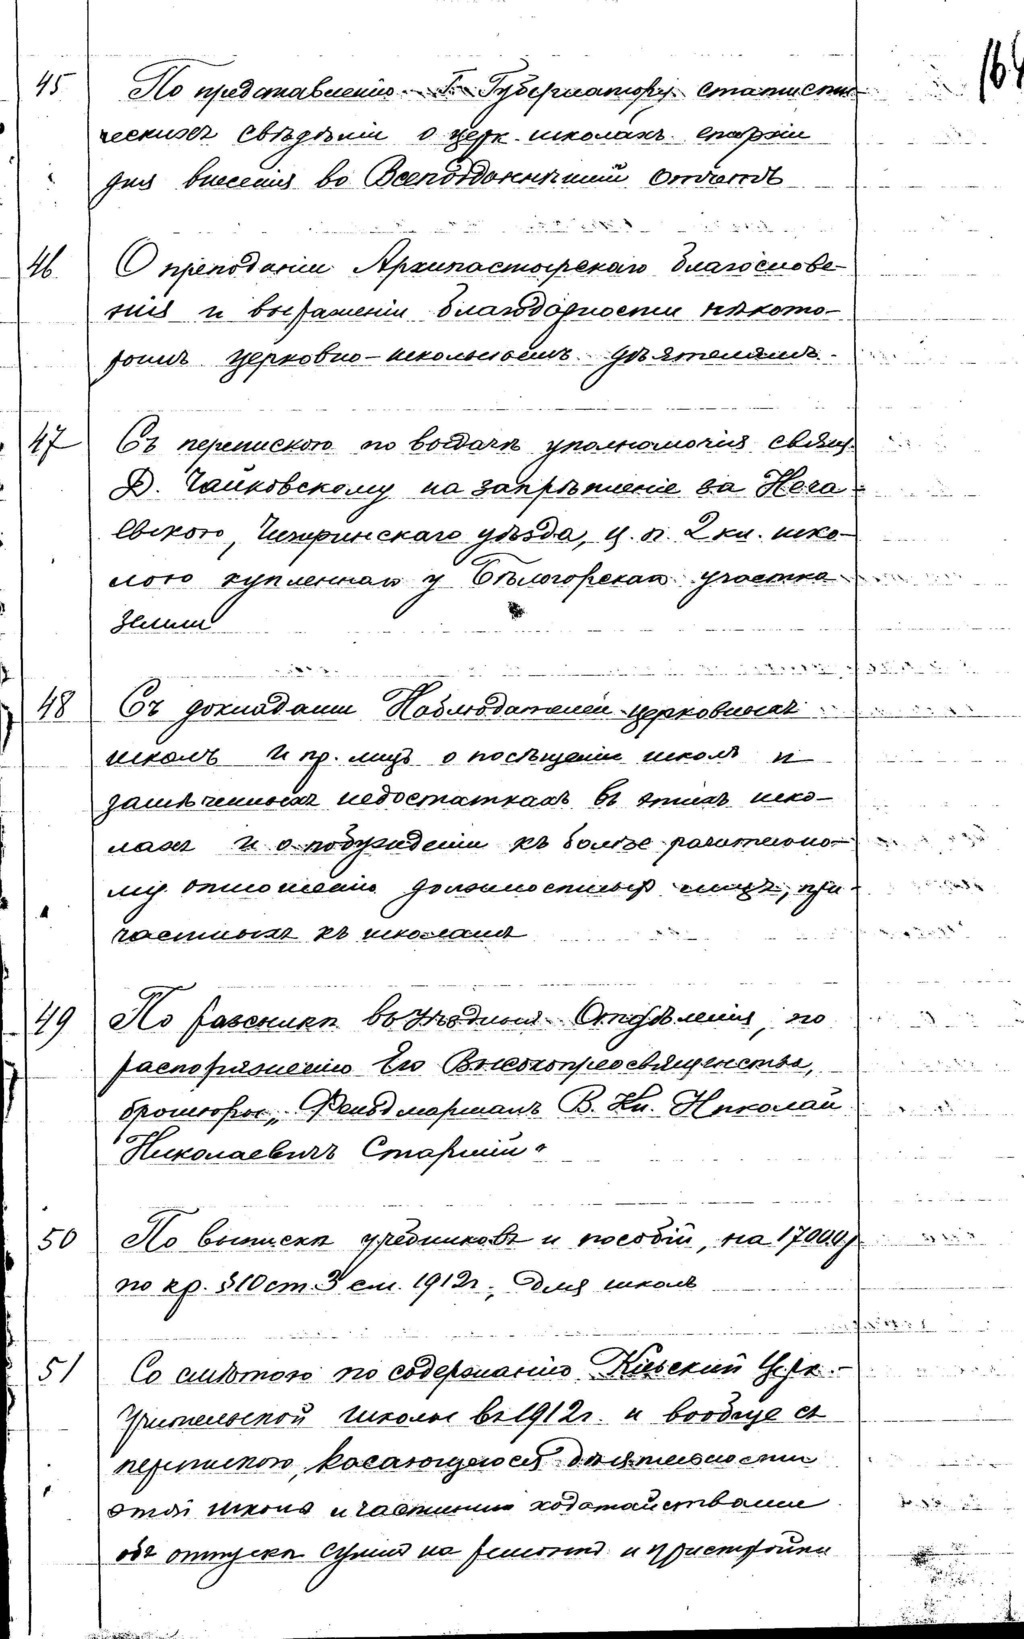 164
45 По представленію Г. Губернатору статисти-
ческихъ свѣдѣній о церк. школахъ епархіи
для внесенія во Всеподданнѣйшій отчетъ
46 О преподаніи Архипастырскаго благослове-
нія и выраженіи благодарности нѣкото-
рымъ церковно-школьнымъ дѣятелямъ.
47 Съ перепискою по выдачѣ уполномочія свящ.
Д. Чайковскому на запрѣпленіе за Неча-
евскою, Чигиринскаго уѣзда, ц. п. 2 кл. шко-
лою купленнаго у Бѣлогорскаго участка
земли
48 Съ докладами Наблюдателей церковныхъ
школъ и пр. лицъ о посѣщеніи школъ и
замѣченныхъ недостаткахъ въ этихъ шко-
лахъ и о побужденіи къ болѣе рачительно-
му отношенію должностныхъ лицъ, при-
частныхъ къ школамъ
49 По разсылкѣ въ Уѣздныя Отдѣленія, по
распоряженію Его Высокопреосвященства,
брошюры „Фельдмаршалъ В. Кн. Николай
Николаевичъ Старшій“
50 По выпискѣ учебниковъ и пособій, на 17000 р
по кр. §10 ст. 3 см. 1912 г., для школъ
51 Со смѣтою по содержанію Кіевской Церк.-
Учительской школы въ 1912 г. и вообще съ
перепискою, касающеюся дѣятельности
этой школы и частными ходатайствами
объ отпускѣ суммъ на ремонтъ и пристройки